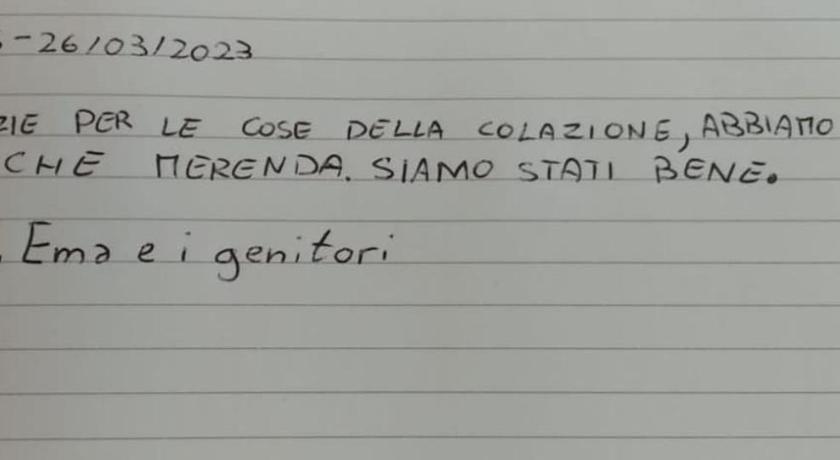 -26/03/2023
ZIE PER LE COSE DELLA COLAZIONE, ABBIAMO
CHE MERENDA. SIAMO STATI BENE.
Ema e i genitori